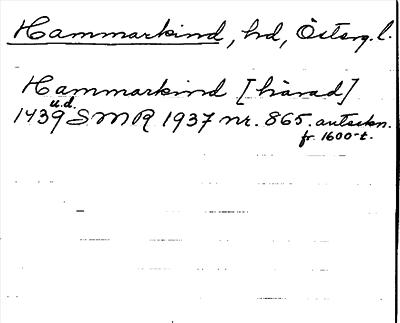 Hammarkind, hd, Österg. l.
Hammarkind [härad]
1439 u.d. SMR 1937 nr. 865. anteckn.
fr. 1600-t.